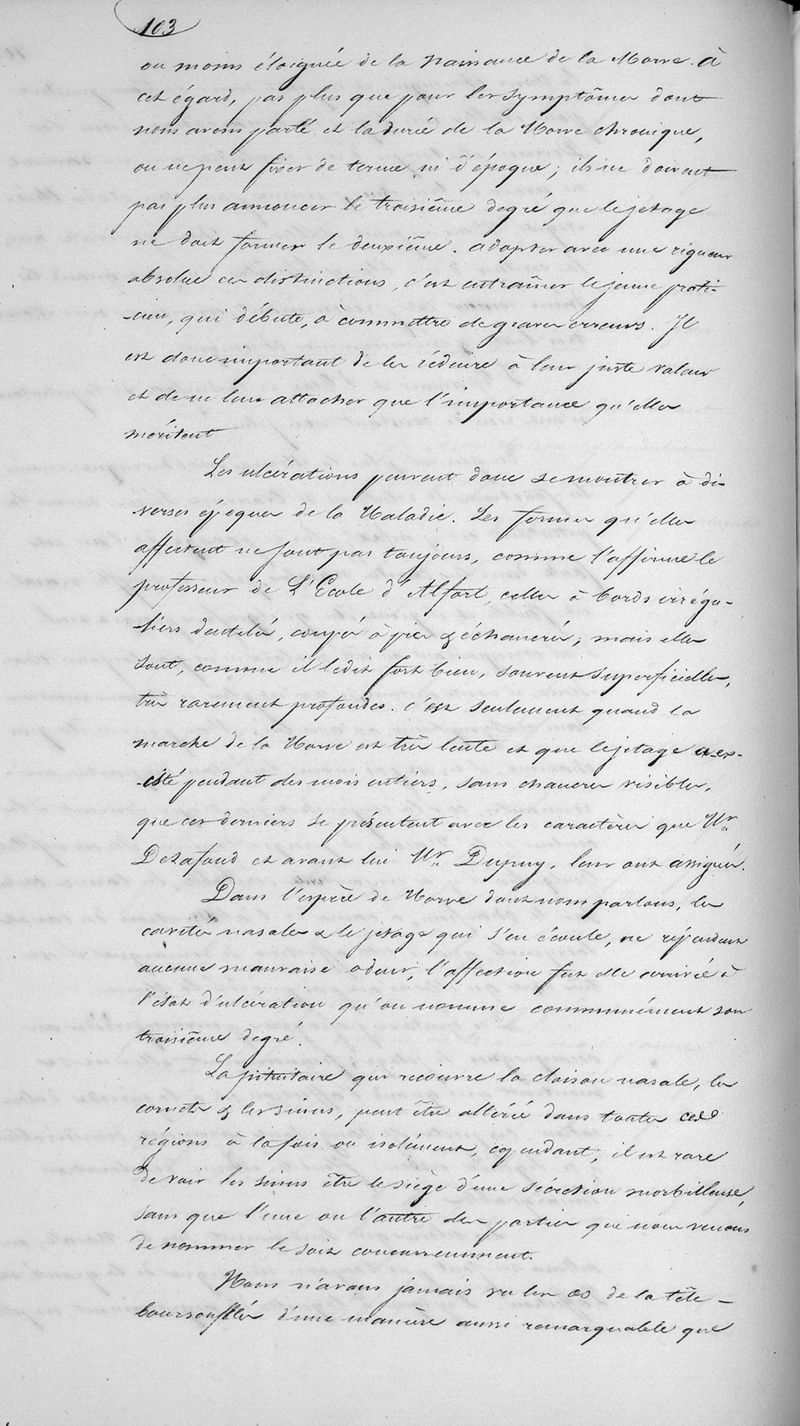 103
ou moins éloignée de la naissance de la Morve. à
cet égard, pas plus que pour les symptômes dont
nous avons parlé et la durée de la Morve chronique,
on ne peut fixer de terme ni d'époque; ils ne doivent
pas plus annoncer le troisième degré que le jetage
ne doit former le deuxième. adopter avec une rigueur
absolue ces distinctions, c'est entraîner le jeune prati-
-cien, qui débute, à commettre de graves erreurs. Il
est donc important de les réduire à leur juste valeur
et de ne leur attacher que l'importance qu'elles
méritent
Les ulcérations peuvent donc se montrer à di-
verses époques de la Maladie. Les formes qu'elles
affectent ne sont pas toujours, comme l'affirme le
professeur de L'Ecole d'Alfort, celles à bords irrégu-
liers dentelés, coupés à pics & échancrés; mais elles
sont, comme il le dit fort bien, souvent superficielles,
très rarement profondes. c'est seulement quand la
marche de la Morve est très lente et que le jetage a ex-
-isté pendant des mois entiers, sans chancres visibles,
que ces derniers se présentent avec les caractères que Mr.
Delafond et avant lui Mr. Dupuy, leur ont assignés.
Dans l'espèce de Morve dont nous parlons, les
cavités nasales & le jetage qui s'en écoule, ne répandent
aucune mauvaise odeur, l'affection fut elle arrivée à
l'état d'ulcération qu'on nomme communément son
troisième degré.
La pituitaire qui recouvre la cloison nasale, les
cornets & les sinus, peut être altérée dans toutes ces
régions à la fois ou isolément, cependant, il est rare
de voir les sinus être le siège d'une sécrétion morbilleuse,
sans que l'une ou l'autre des parties que nous venons
de nommer le soit concurremment.
Nous n'avons jamais vu les os de la tête –
boursouflés d'une manière aussi remarquable que